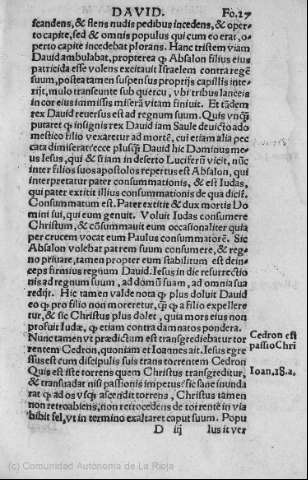 DAVID. Fo.27
scandens, & flens nudis pedibus incedens, & oper-
to capite, sed & omnis populus qui cum eo erat, o-
perto capite incedebat plorans. Hanc tristem viam
David ambulabat, propterea ꝙ Absalon filius eius
patricida esse volens excitauit Israelem contra regē
suum, postea tamen suspensus proprijs capillis inte-
rijt, mulo transeunte sub quercu, vbi tribus lanceis
in cor eius immissis miserā vitam finiuit. Et tādem
rex Dauid reuersus est ad regnum suum. Quis vnq̄
putaret ꝙ insignis rex Dauid iam Saule deuicto ado
mestico filio vexaretur ad mortē, cui etiam alia pec
cata dimiserat? ecce plusq̄ Dauid hic Dominus me-
us Iesus, qui & etiam in deserto Luciferū vicit, nūc
inter filios suos apostolos repertus est Absalon, qui
interpretatur pater consummationis, & est Iudas,
qui pater extitit illius consummationis de qua dicit,
Consummatum est. Pater extitit & dux mortis Do
mini sui, qui eum genuit. Voluit Iudas consumere
Christum, & cōsummauit eum occasionaliter quia
per crucem vocat eum Paulus consummatorē. Sic
Absalon volebat patrem suum consumere, & reg-
no priuare, tamen propter eum stabilitum est dein-
ceps firmius regnum Dauid. Iesus in die resurrectio
nis ad regnum suum, ad domū suam, ad omnia sua
redijt. Hic tamen valde nota ꝙ plus doluit Dauid
eo ꝙ pro filio non moreretur, q̄ ꝙ a filio expellere
tur, & sic Christus plus dolet, quia mors eius non
profuit Iudæ, ꝙ etiam contra damnatos pondera.
Nunc tamen vt prædictum est transgrediebatur tor
rentem Cedron, quoniam et Ioannes ait. Iesus egre
ssus est cum discipulis suis trans torrentem Cedron
Quis est iste torrens quem Christus transgreditur,
& transuadat nisi passionis impetus? sic sane inunda
rat ꝙ ad os vsq̄ ascendit torrens, Christus tamen
non retroabiens, non retrocedens de torrente in via
bibit sed, vt in termino exaltaret caput suum. Popu
D iij lus it ver
Cedron est
passio Chri
Ioan. 18. a.
(c) Comunidad Autónoma de La Rioja